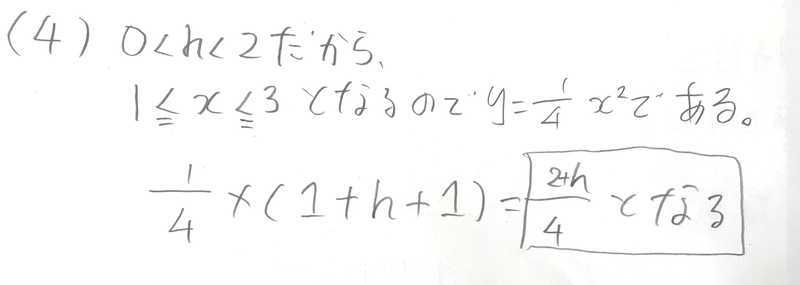 (4) 0<h<2だから、
1≦x≦3となるのでy=1/4 x²である。
1/4×(1+h+1)=2+h/4となる